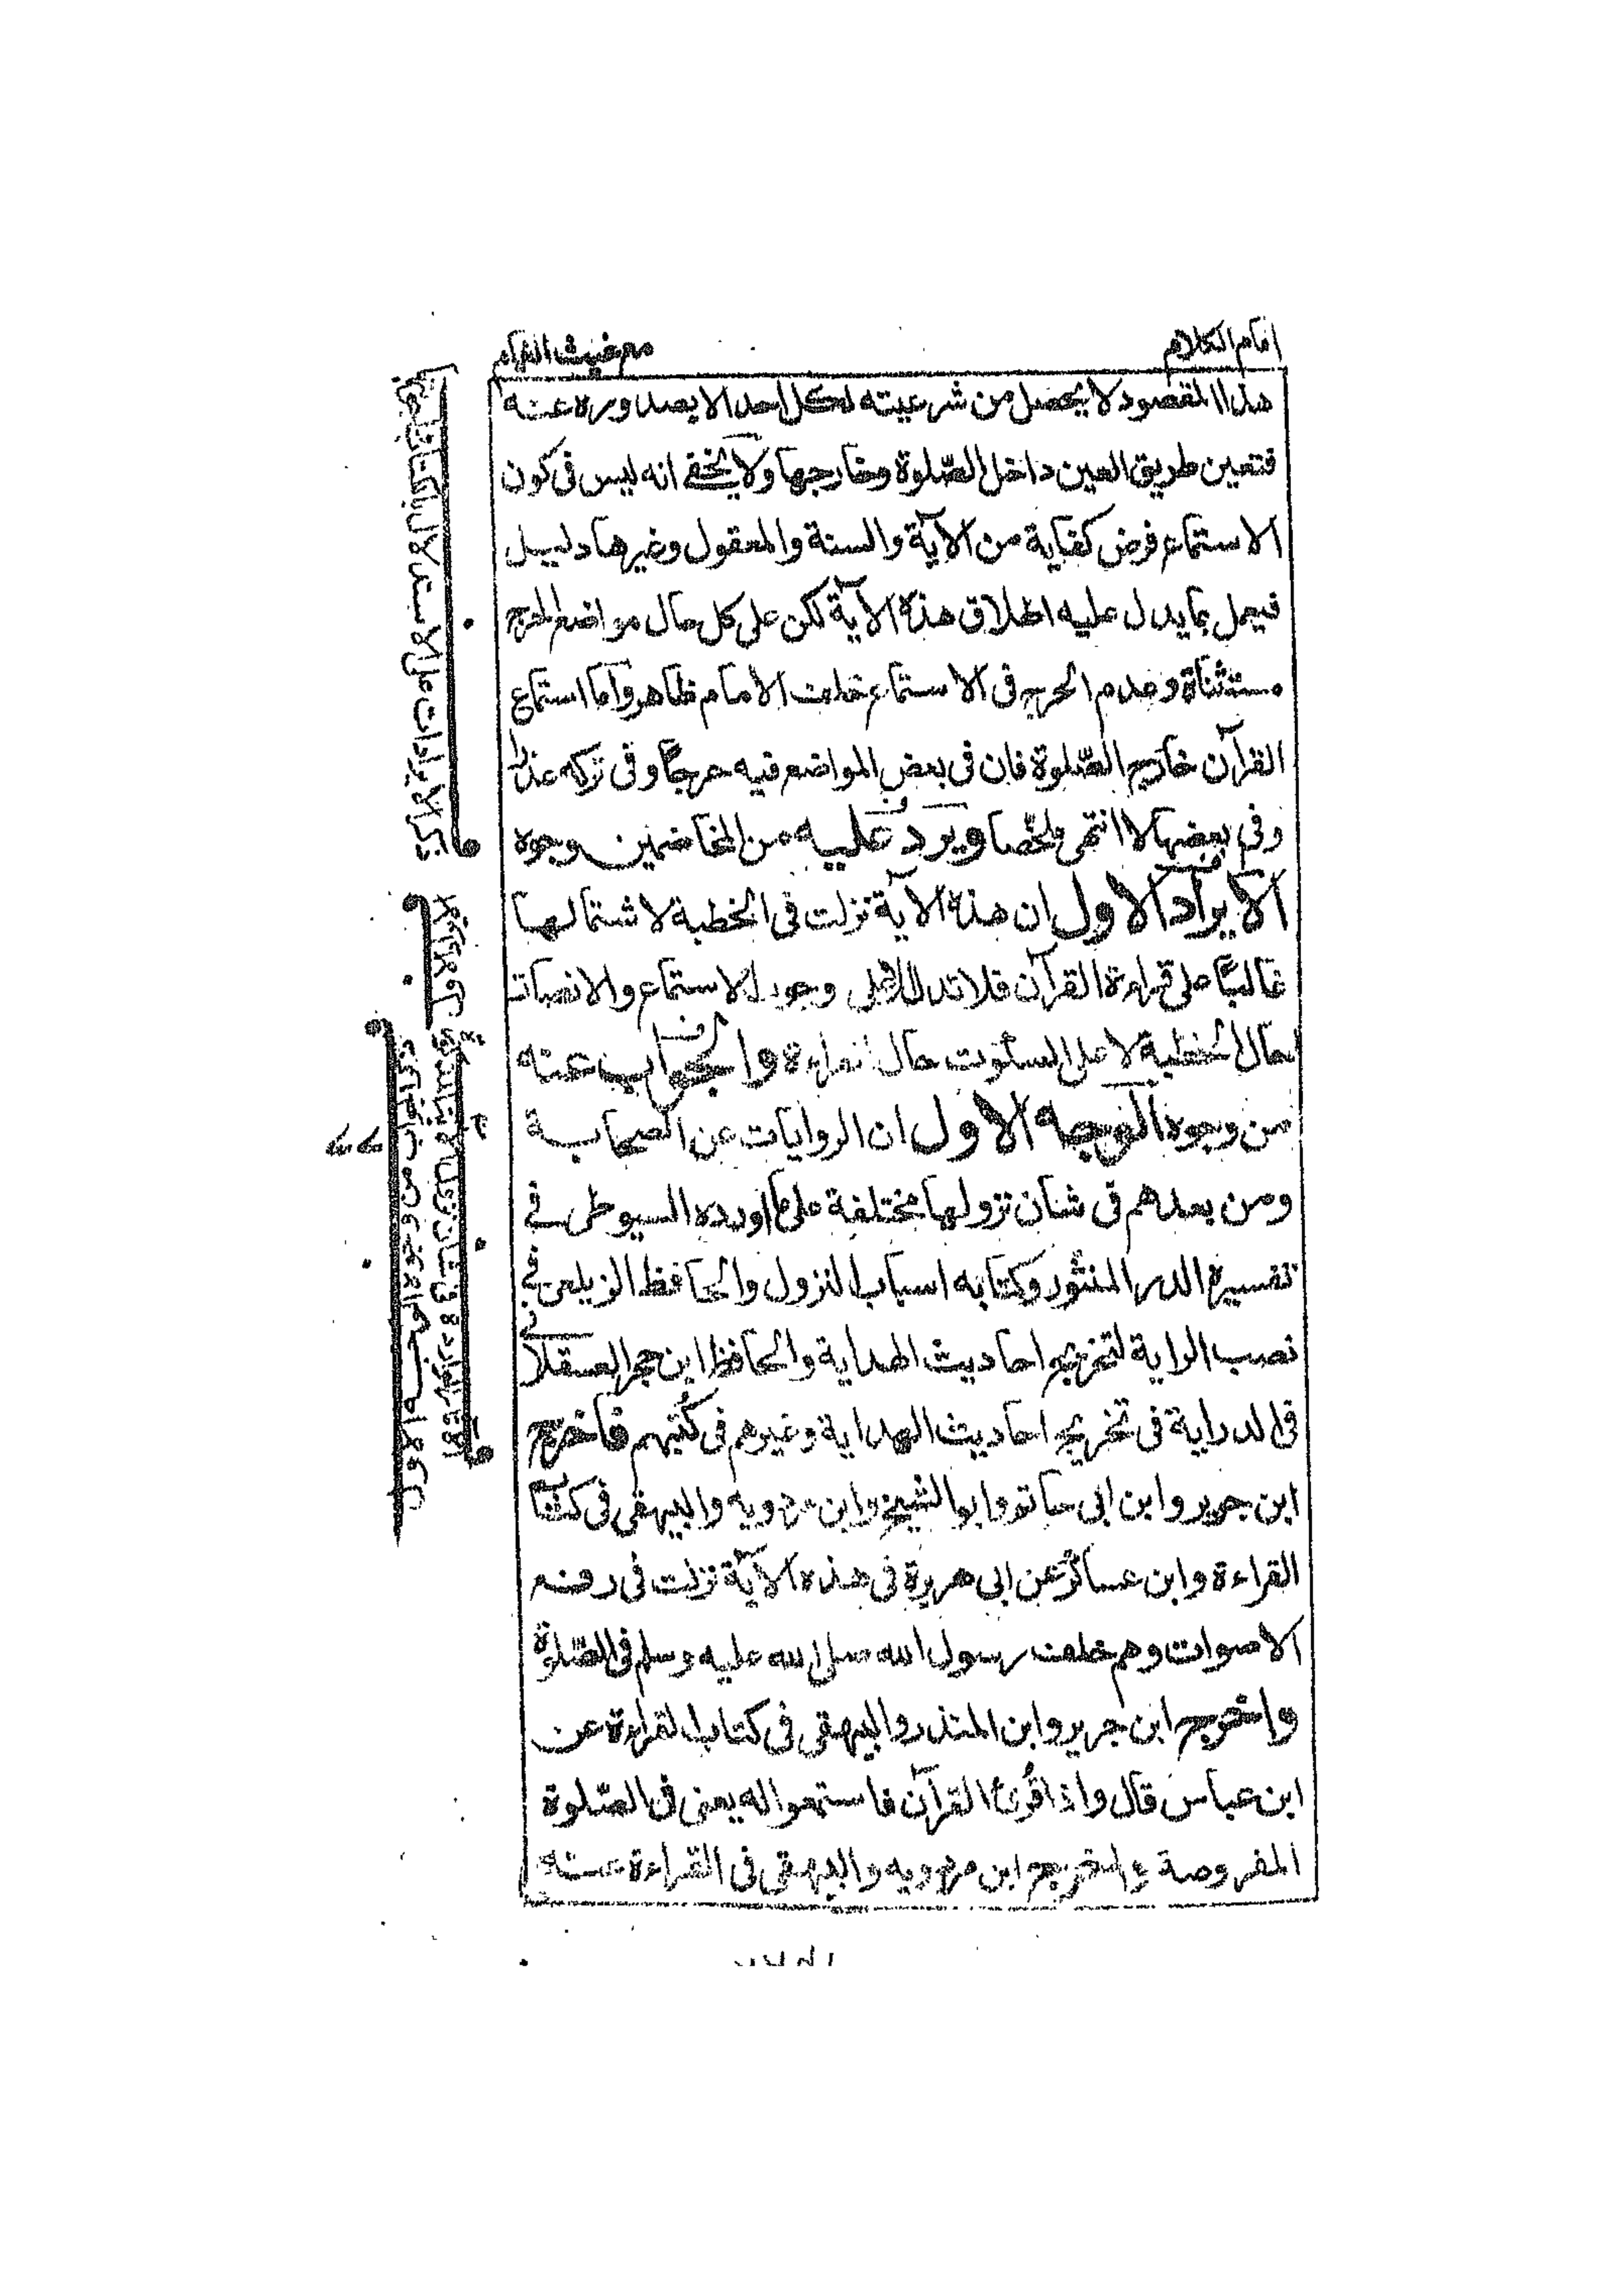 امام الكلام
مع غيث الغمام
هذا المقصود لا يحصل من شرعيته لكل احد الا بصدوره عنه
فتعين طريق العين داخل الصّلوة وخارجها ولا يخفى انه ليس فى كون
الاستماع فرض كفاية من الآية والسنة والمعقول وغيرها دليل
فيعمل بما يدل عليه اطلاق هذه الآية لكن على كل حال مواضع الحرج
مستثناة وعدم الحرج فى الاستماع خلف الامام ظاهر وآما استماع
القرآن خارج الصّلوة فان فى بعض المواضع فيه حرجًا وفى تركه عذرا
وفى بعضها لا انتهى ملخّصا ويرد عليه من المخاصمين وجوه
الايراد الاول ان هذه الآية نزلت فى الخطبة لاشتمالها
غالبًا على قراءة القرآن فلا تدل الا على وجوب الاستماع والانصات
حال الخطبة لا على السكوت حال القراءة والجواب عنه
من وجوه الوجه الاول ان الروايات عن الصحابة
ومن بعدهم فى شان نزولها مختلفة على ما اورده السيوطى فى
تفسيره الدر المنثور وكتابه اسباب النزول والحافظ الزيلعى فى
نصب الراية لتخريج احاديث الهداية والحافظ ابن حجر العسقلانى
فى الدراية فى تخريج احاديث الهداية وغيرهم فى كتبهم فاخرج
ابن جرير وابن ابى حاتم وابو الشيخ وابن مردويه والبيهقى فى كتاب
القراءة وابن عساكر عن ابى هريرة فى هذه الآية نزلت فى رفع
الاصوات وهم خلف رسول الله صلى الله عليه وسلم فى الصّلوة
واخرج ابن جرير وابن المنذر والبيهقى فى كتاب القراءة عن
ابن عباس قال واذا قُرئ القرآن فاستمعوا له يعنى فى الصّلوة
المفروضة واخرج ابن مردويه والبيهقى فى القراءة عنه